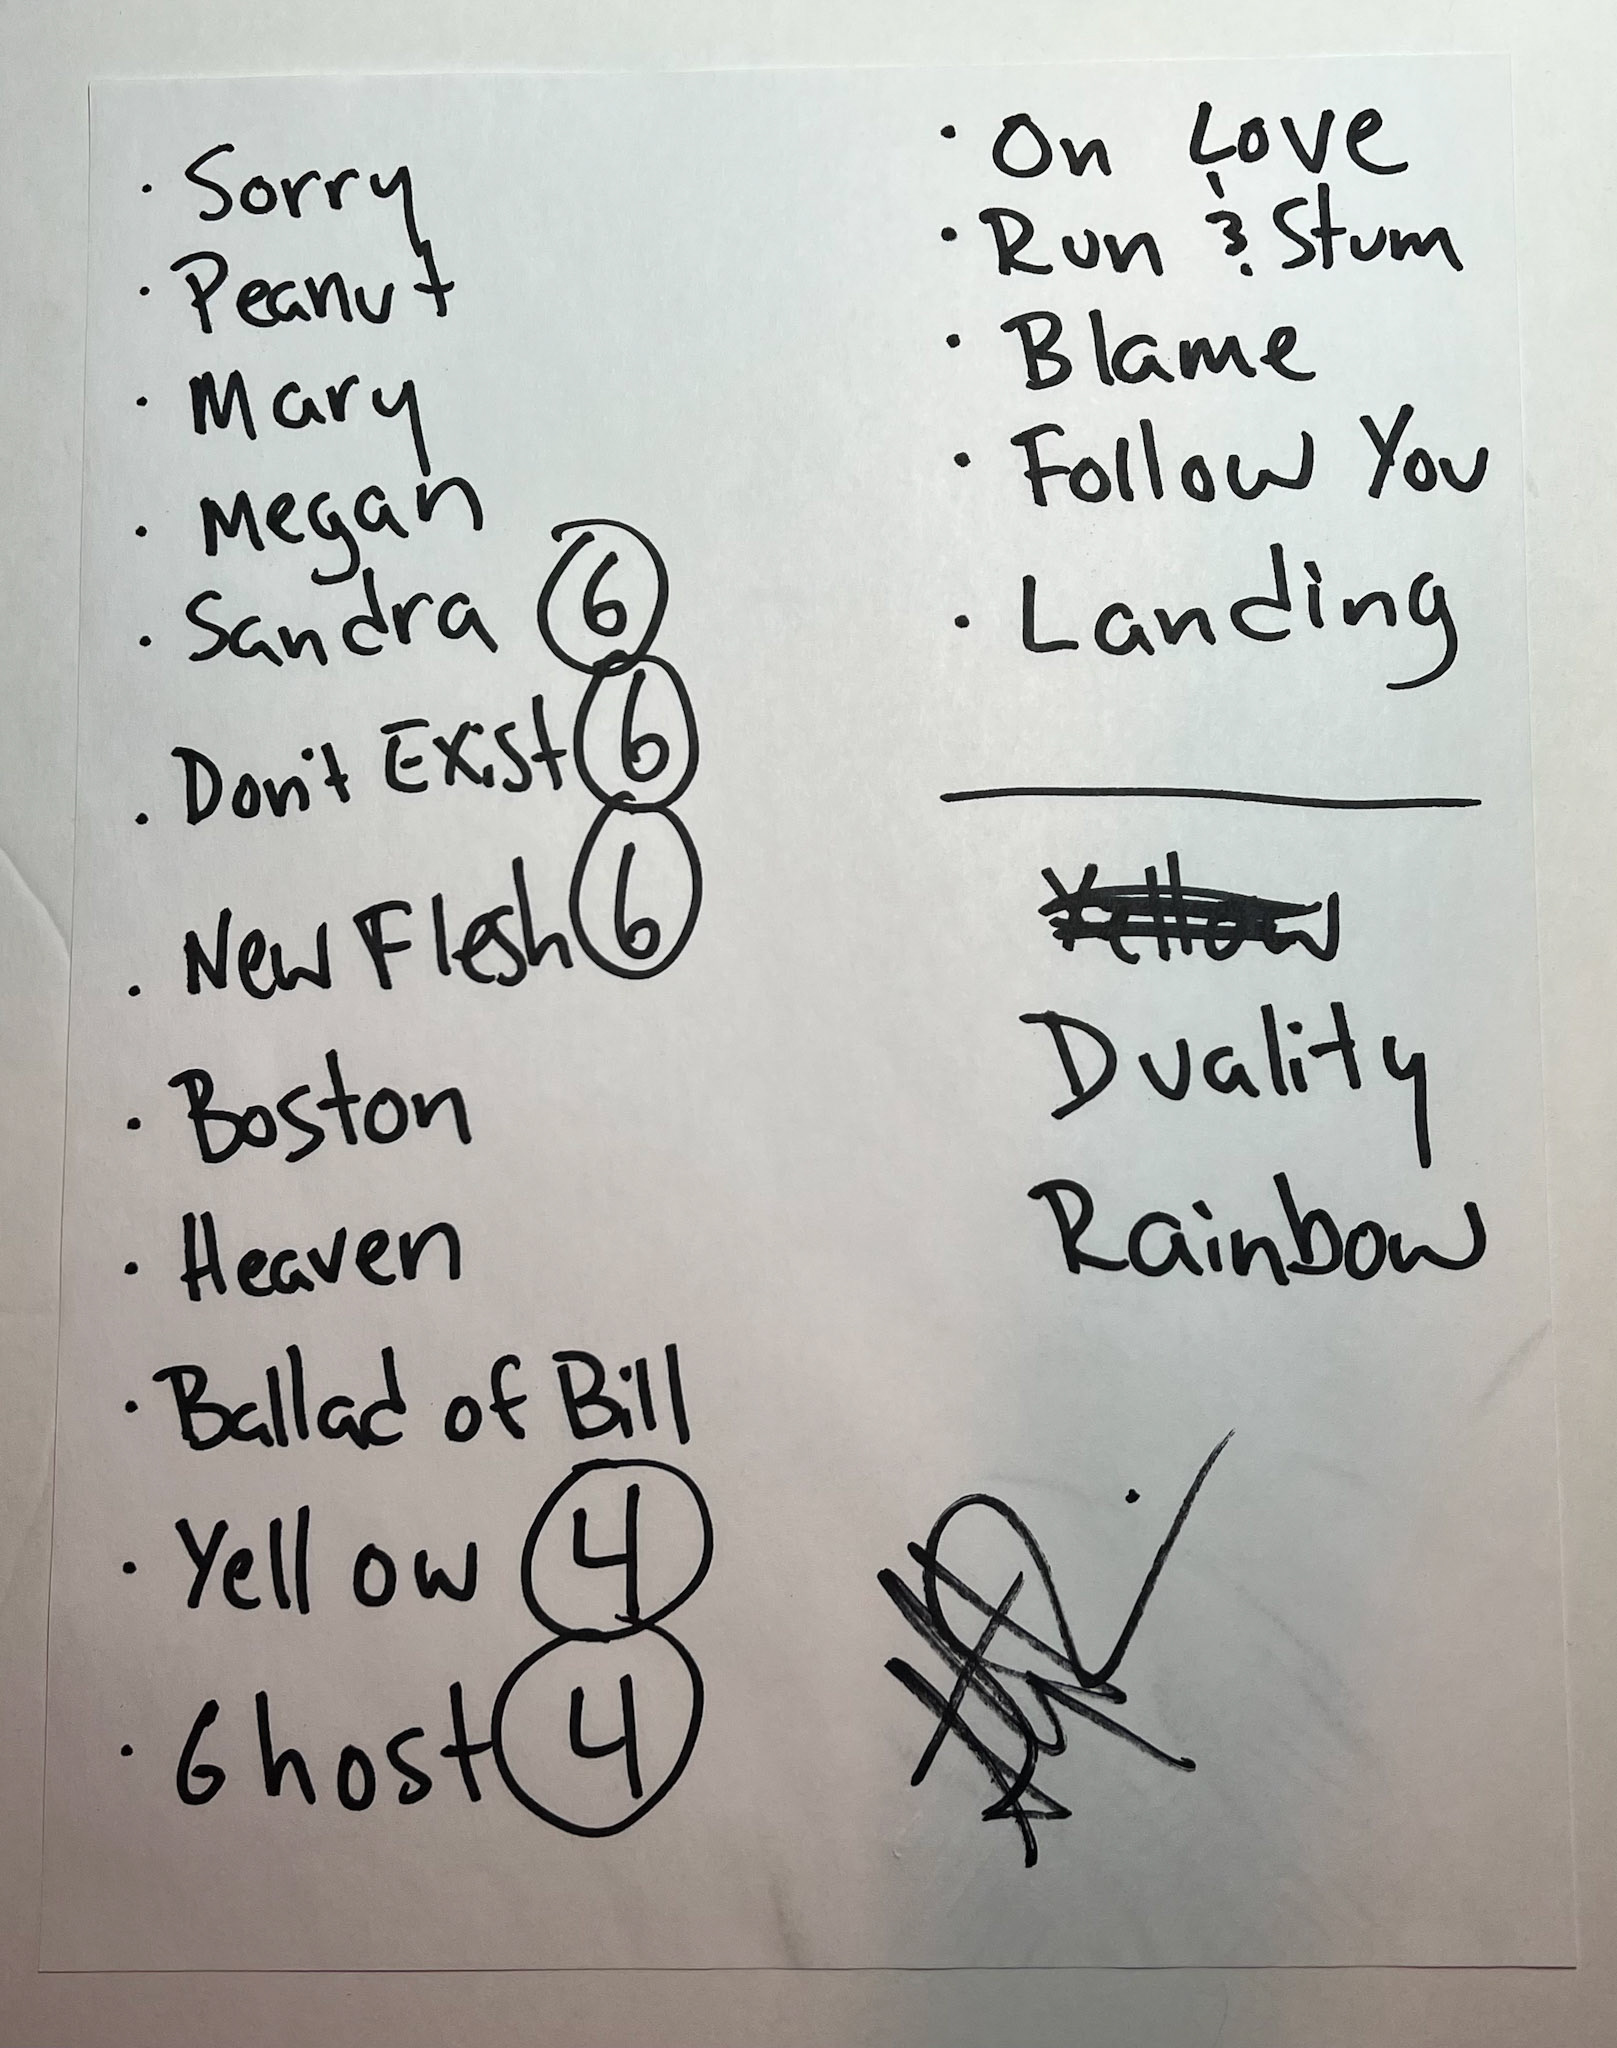 · Sorry
· Peanut
· Mary
· Megan
· Sandra 6
· Don't Exist 6
· New Flesh 6
· Boston
· Heaven
· Ballad of Bill
· Yellow 4
· Ghost 4
· On Love
· Run & Stum
· Blame
· Follow You
· Landing
Yellow
Duality
Rainbow